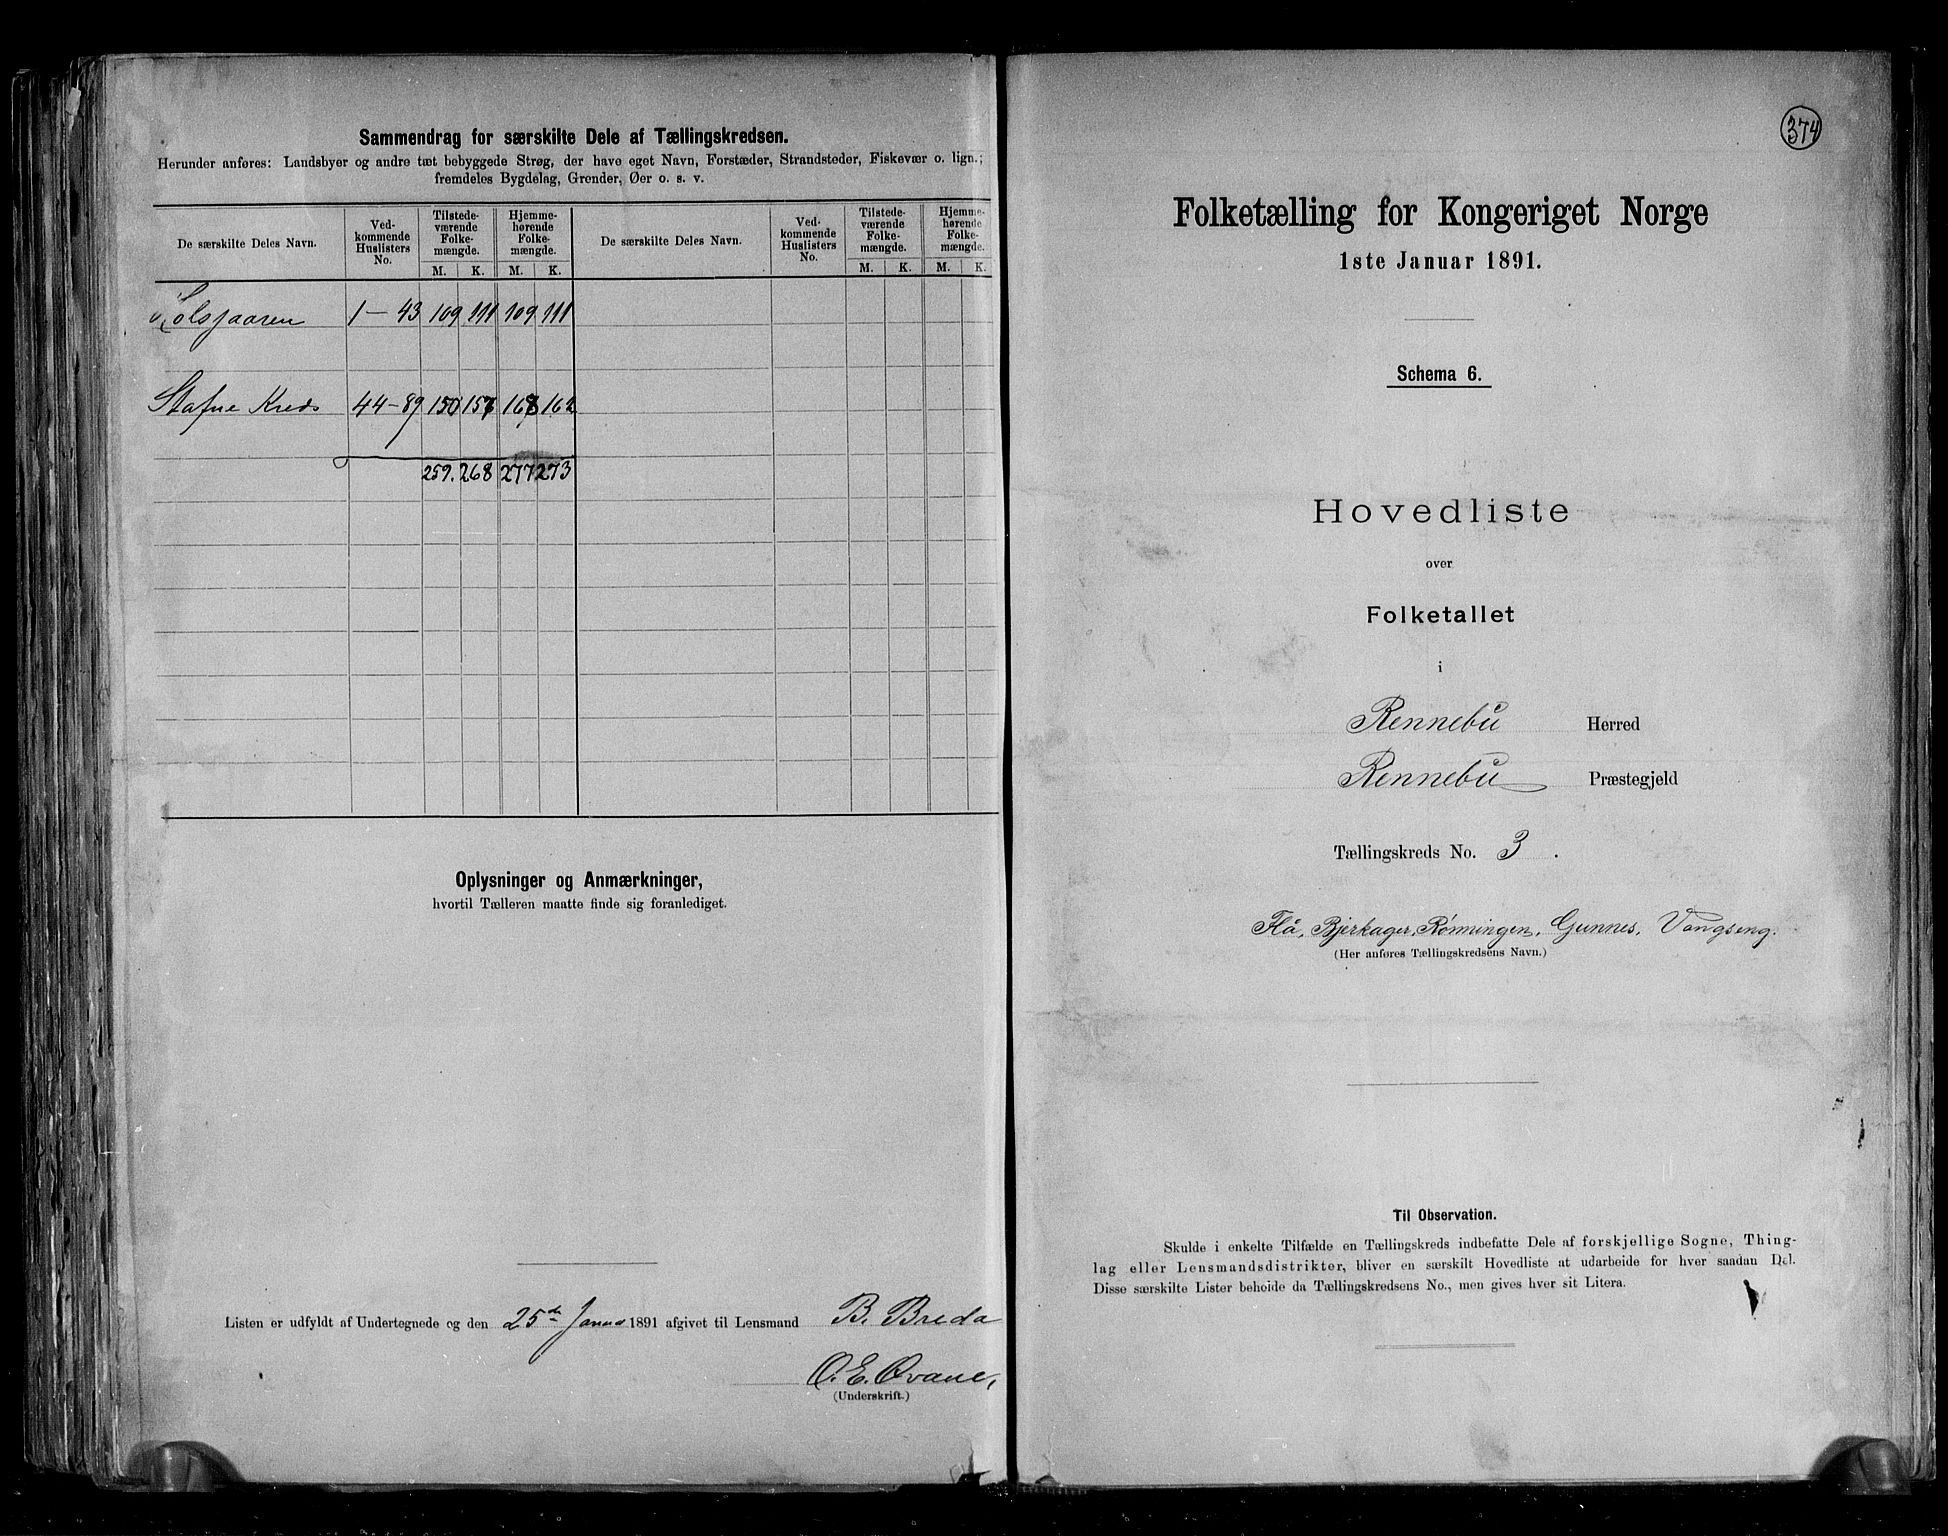 Sammendrag for særskilte Dele af Tællingskredsen.
Herunder anføres: Landsbyer og andre tæt bebyggede Strøg, der have eget Navn, Forstæder, Strandsteder, Fiskevær o. lign.;
fremdeles Bygdelag, Grender, Øer o. s. v.
De særskilte Deles Navn.
Ved-
kommende
Huslisters
No.
Tilstede-
værende
Folke-
mængde.
M. K.
Hjemme-
hørende
Folke-
mængde.
M. K.
De særskilte Deles Navn.
Ved-
kommende
Huslisters
No.
Tilstede-
værende
Folke-
mængde.
M. K.
Hjemme-
hørende
Folke-
mængde.
M. K.
1 — 43 109 111 109 111
Stafne Kreds 44 — 89 150 157 168 162
259. 268 277 273
Oplysninger og Anmærkninger,
hvortil Tælleren maatte finde sig foranlediget.
Listen er udfyldt af Undertegnede og den 25de Janua 1891 afgivet til Lensmand B. Breda
O. E. Qvane,
(Underskrift.)
374
Folketælling for Kongeriget Norge
1ste Januar 1891.
Schema 6.
Hovedliste
over
Folketallet
i
Rennebu Herred
Rennebu Præstegjeld
Tællingskreds No. 3 .
Flå, Bjerkager, Rønningen, Gunnes, Vangseng.
(Her anføres Tællingskredsens Navn.)
Til Observation.
Skulde i enkelte Tilfælde en Tællingskreds indbefatte Dele af forskjellige Sogne, Thing-
lag eller Lensmandsdistrikter, bliver en særskilt Hovedliste at udarbeide for hver saadan Del.
Disse særskilte Lister beholde da Tællingskredsens No., men gives hver sit Litera.